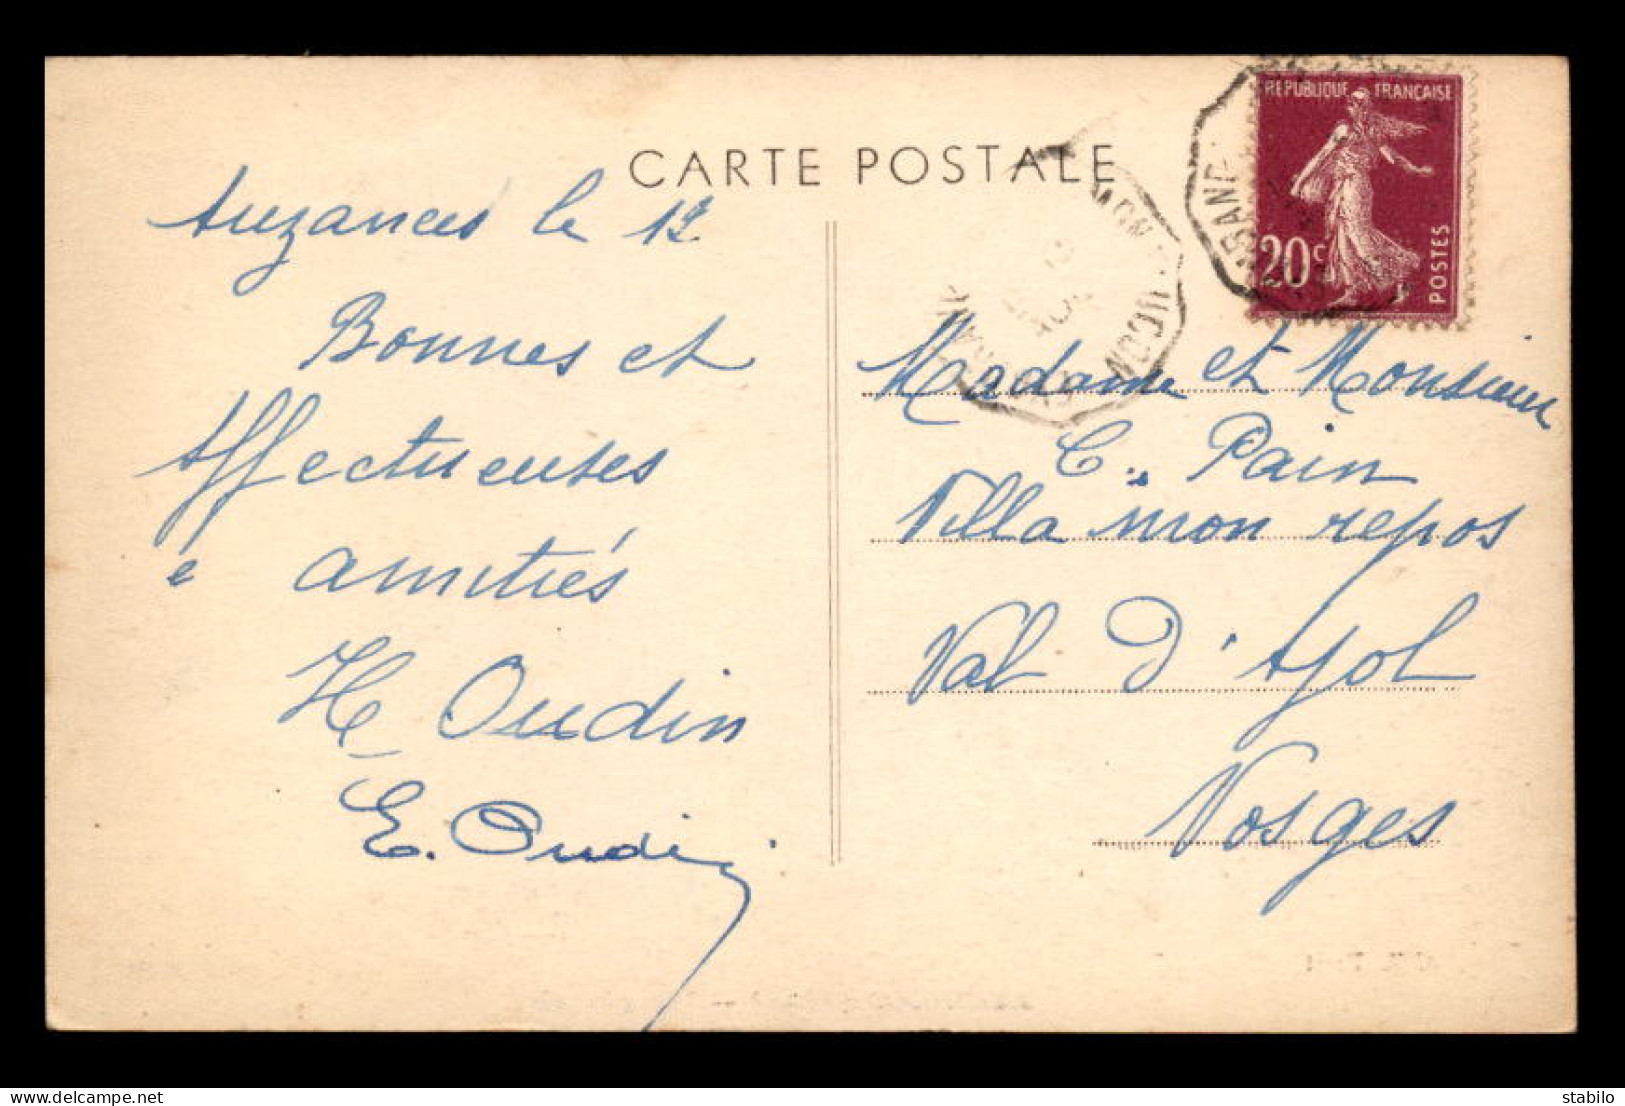 CARTE POSTALE
RÉPUBLIQUE FRANÇAISE
20c
POSTES
Auzances le 12
Bonnes et
Affectueuses
amitiés
H Oudin
E. Oudin
Madame et Monsieur
C. Pain
Villa mon repos
Val D'Ajol
Vosges
delcampe.net
stabilo